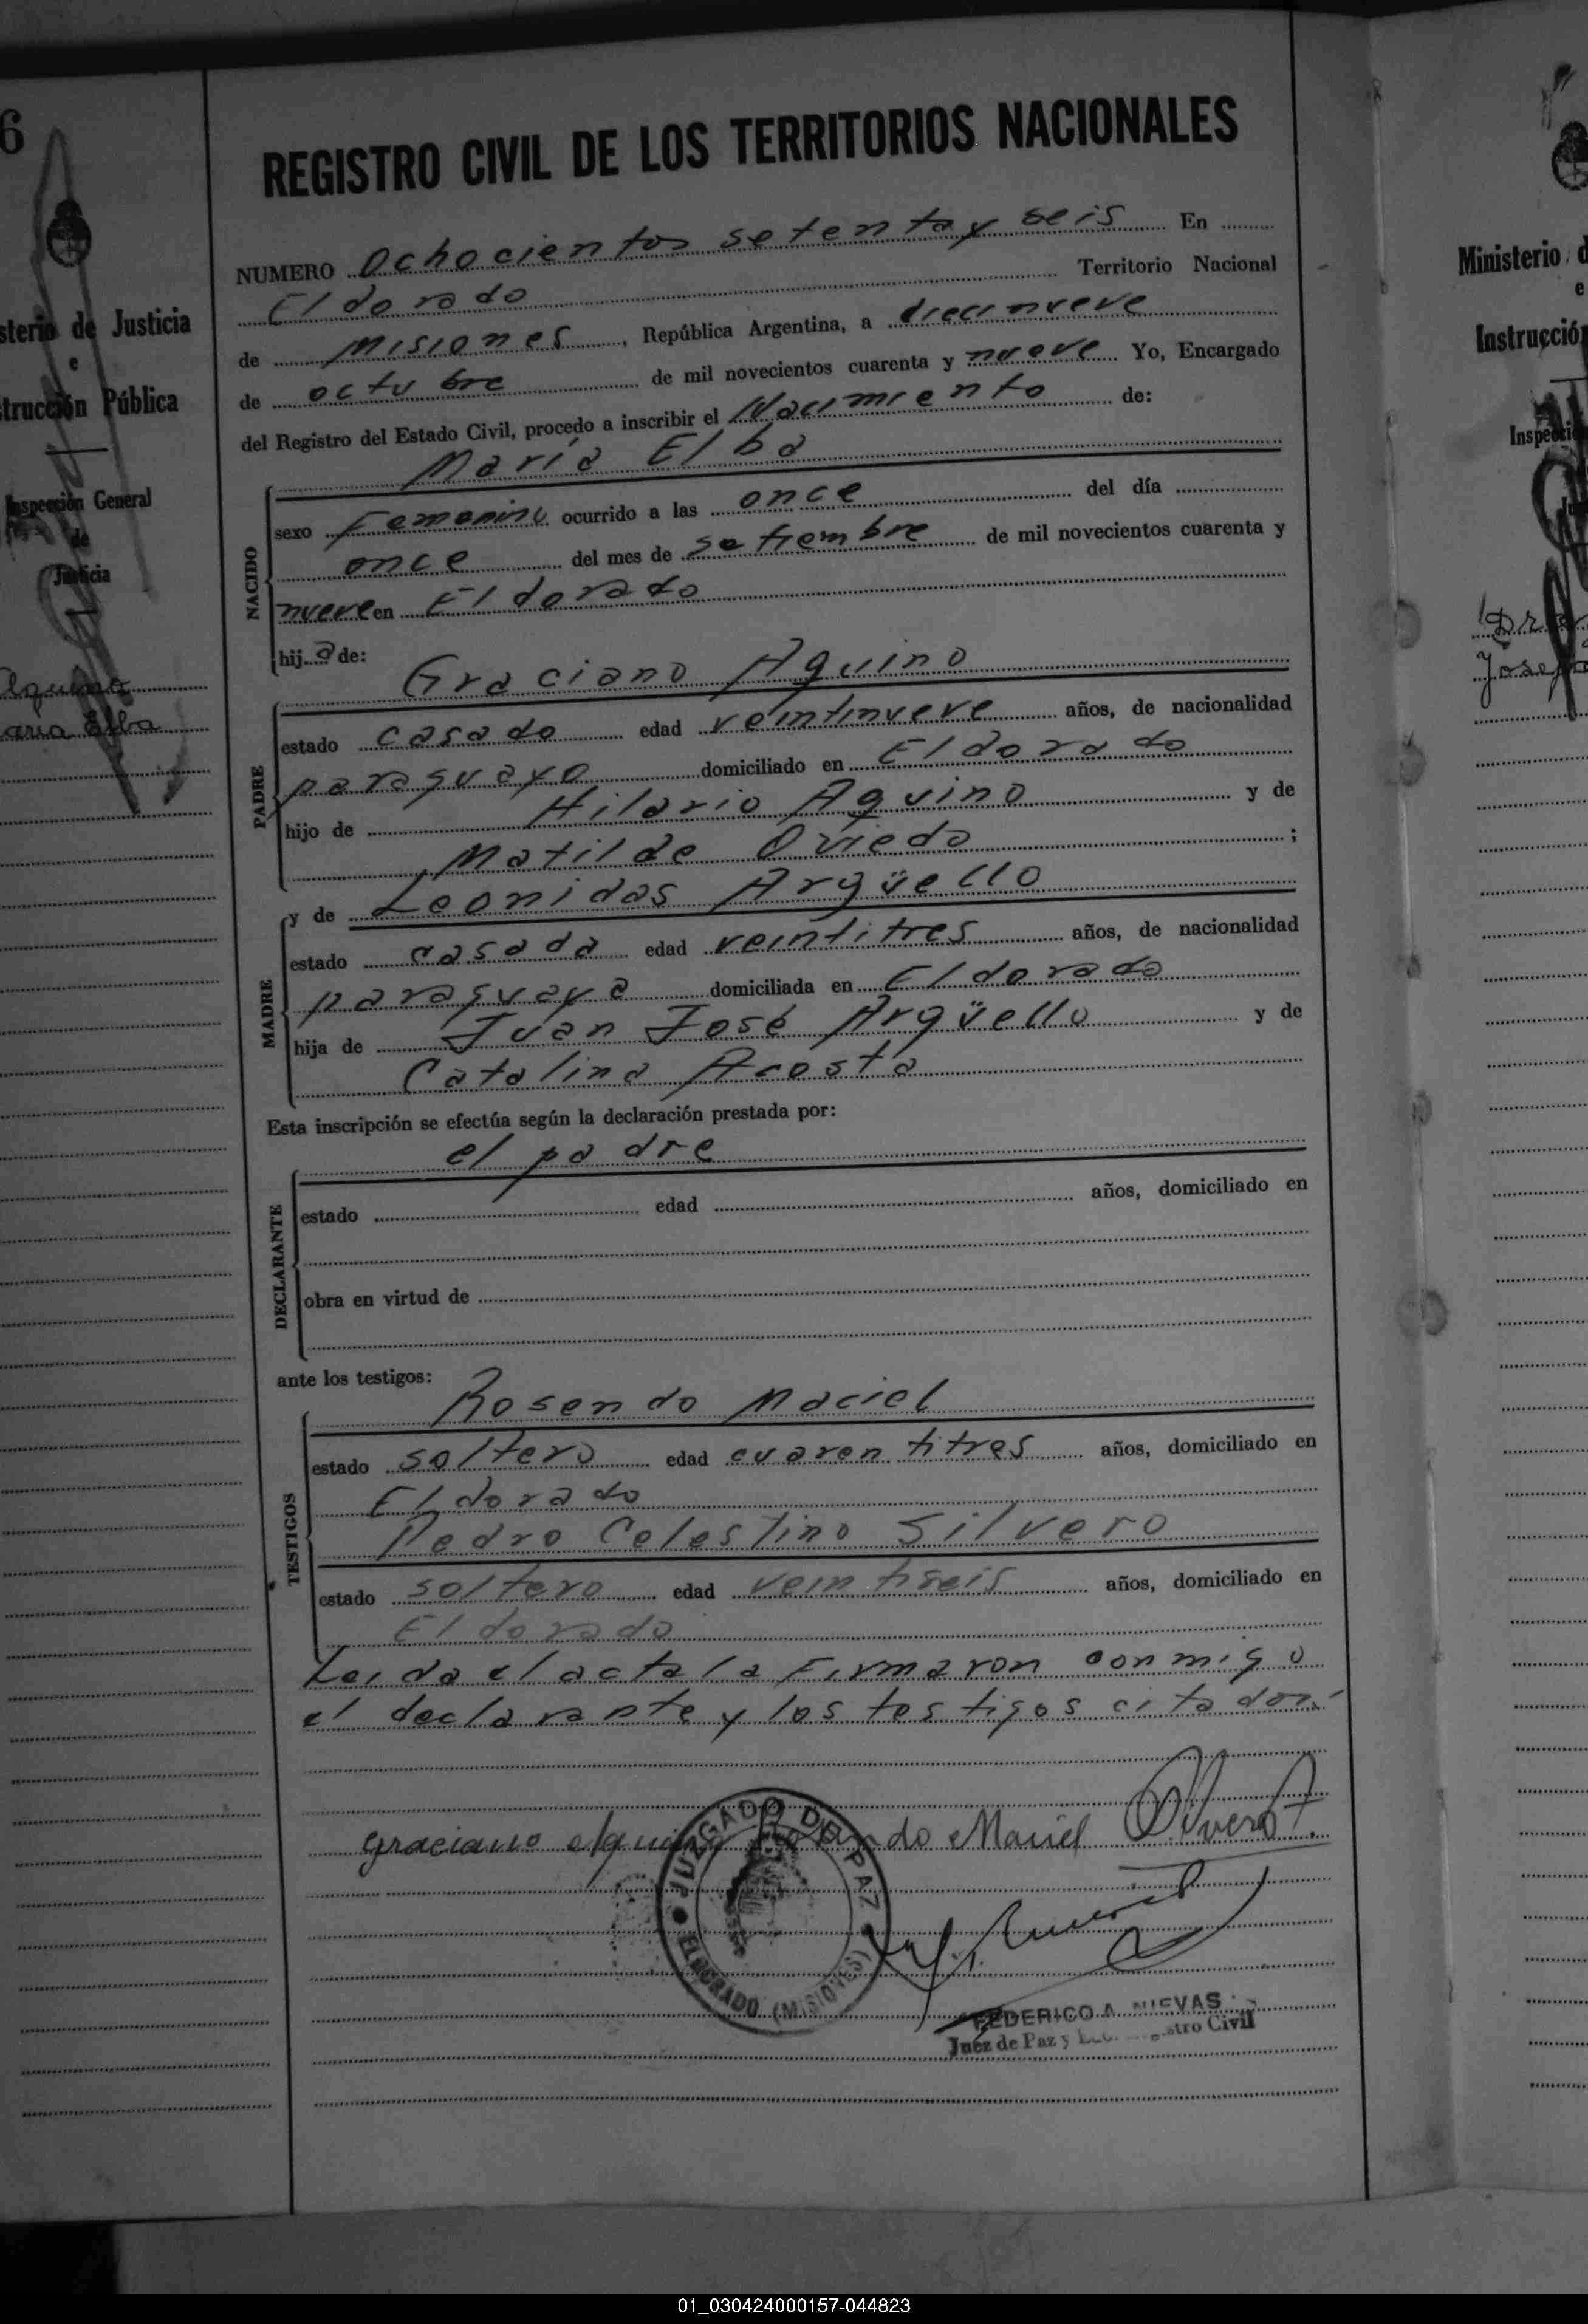 6
sterio de Justicia
e
trucción Pública
Inspección General
de
Justicia
Aquino
aria Elba
REGISTRO CIVIL DE LOS TERRITORIOS NACIONALES
NUMERO Ochocientos setenta y seis En
Eldorado Territorio Nacional
de Misiones, República Argentina, a diecinueve
de octubre de mil novecientos cuarenta y nueve Yo, Encargado
del Registro del Estado Civil, procedo a inscribir el Nacimiento de:
María Elba
NACIDO
sexo Femenino ocurrido a las once del día
once del mes de setiembre de mil novecientos cuarenta y
nueve en Eldorado
hija de:
Graciano Aquino
PADRE
estado casado edad veintinueve años, de nacionalidad
paraguayo domiciliado en Eldorado
hijo de Hilario Aquino y de
Matilde Oviedo ;
y de Leonidas Argüello
MADRE
estado casada edad veintitres años, de nacionalidad
paraguaya domiciliada en Eldorado
hija de Juan José Argüello y de
Catalina Acosta
Esta inscripción se efectúa según la declaración prestada por:
el padre
DECLARANTE
estado edad años, domiciliado en
obra en virtud de
ante los testigos:
Rosendo Maciel
TESTIGOS
estado soltero edad cuarentitres años, domiciliado en
Eldorado
Pedro Celestino Silvero
estado soltero edad veintiseis años, domiciliado en
Eldorado
Leida el acta la Firmaron conmigo
el declarante y los testigos citados.-
graciano Aquino Maciel Silvero
JUZGADO DE PAZ
ELDORADO (MISIONES)
FEDERICO A. NUEVAS
Juez de Paz y Enc. Registro Civil
Ministerio d
e
Instrucción
Inspección
Dr
José
01_030424000157-044823